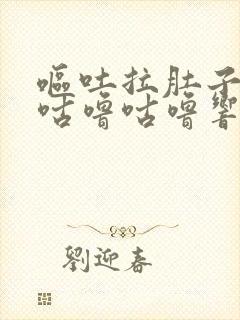 嘔吐拉肚子
咕嚕咕嚕響
劉迎春